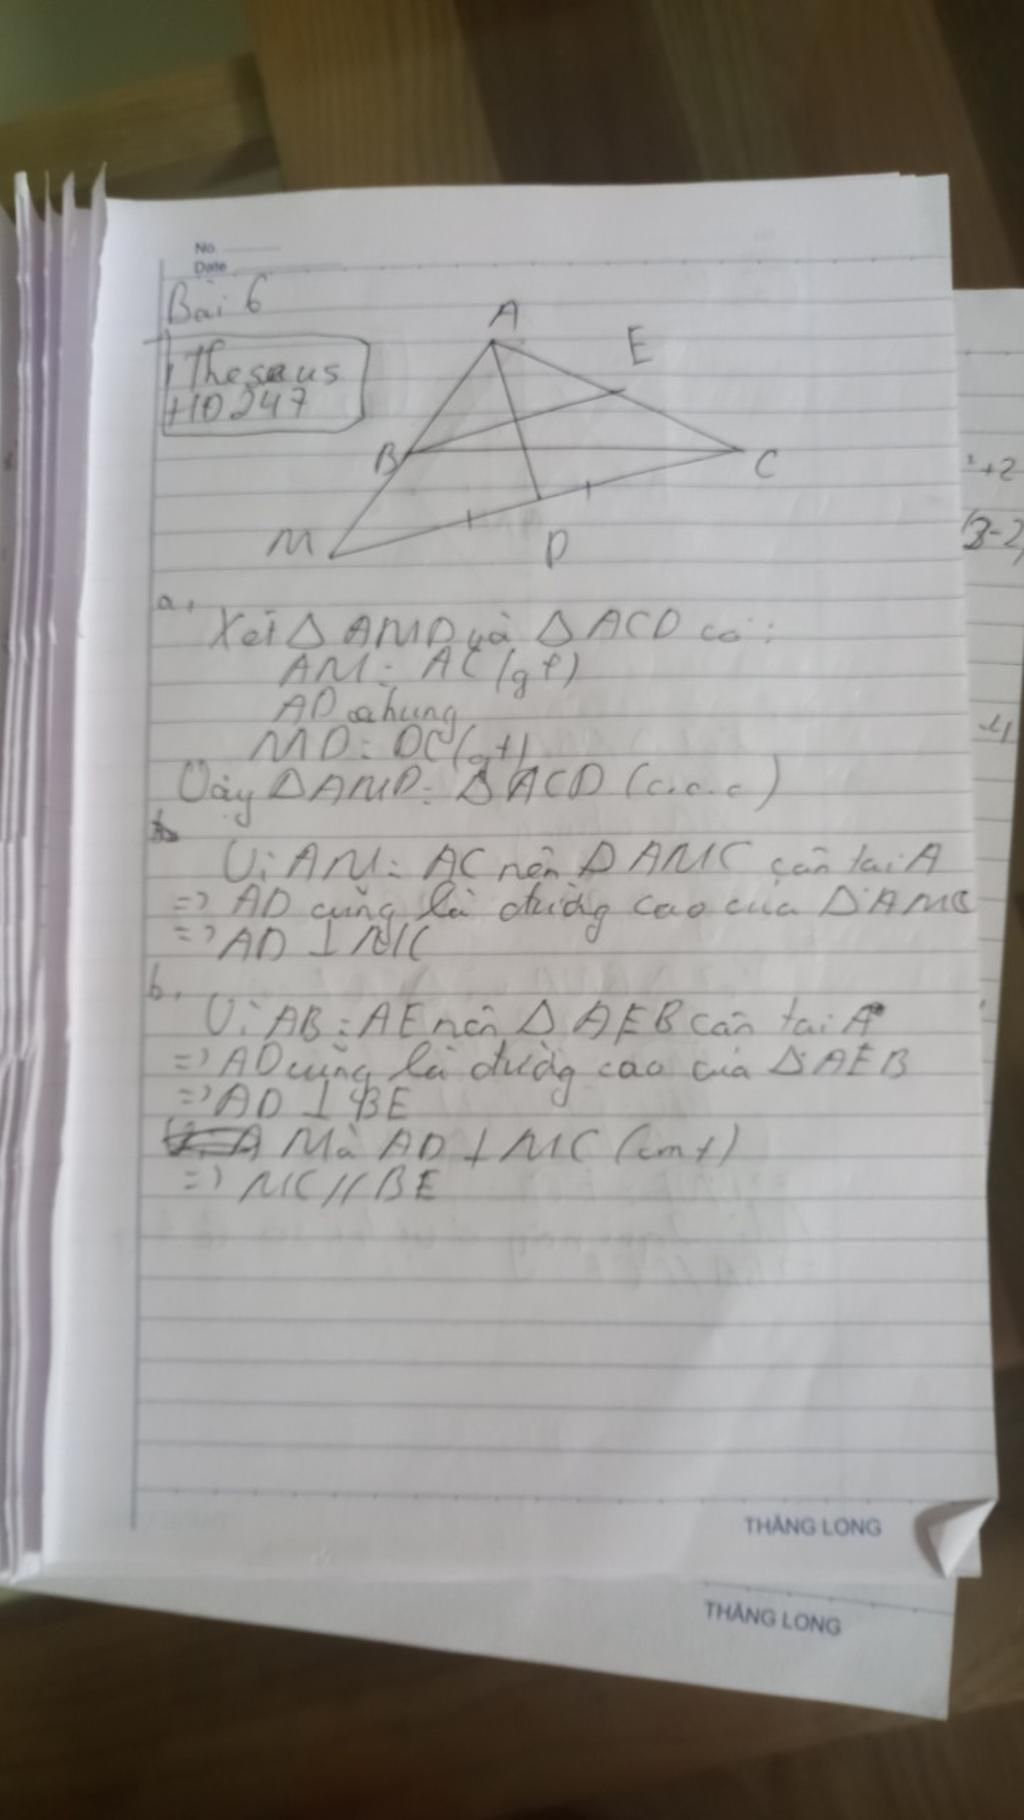 No.
Date
Bài 6
Thesaus
HD247
A
E
B
C
M
D
a,
Xét Δ AMD và Δ ACD có:
AM = AC (gt)
AD chung
MD = DC (gt)
Vậy ΔAMD = ΔACD (c.c.c)
Vì AM = AC nên ΔAMC cân tại A
=> AD cũng là đường cao của ΔAMC
=> AD ⊥ MC
b,
Vì AB = AE nên Δ AEB cân tại A
=> AD cũng là đường cao của ΔAEB
=> AD ⊥ BE
Mà AD ⊥ MC (cmt)
=> MC // BE
²+2
(3-2
-4
THĂNG LONG
THĂNG LONG